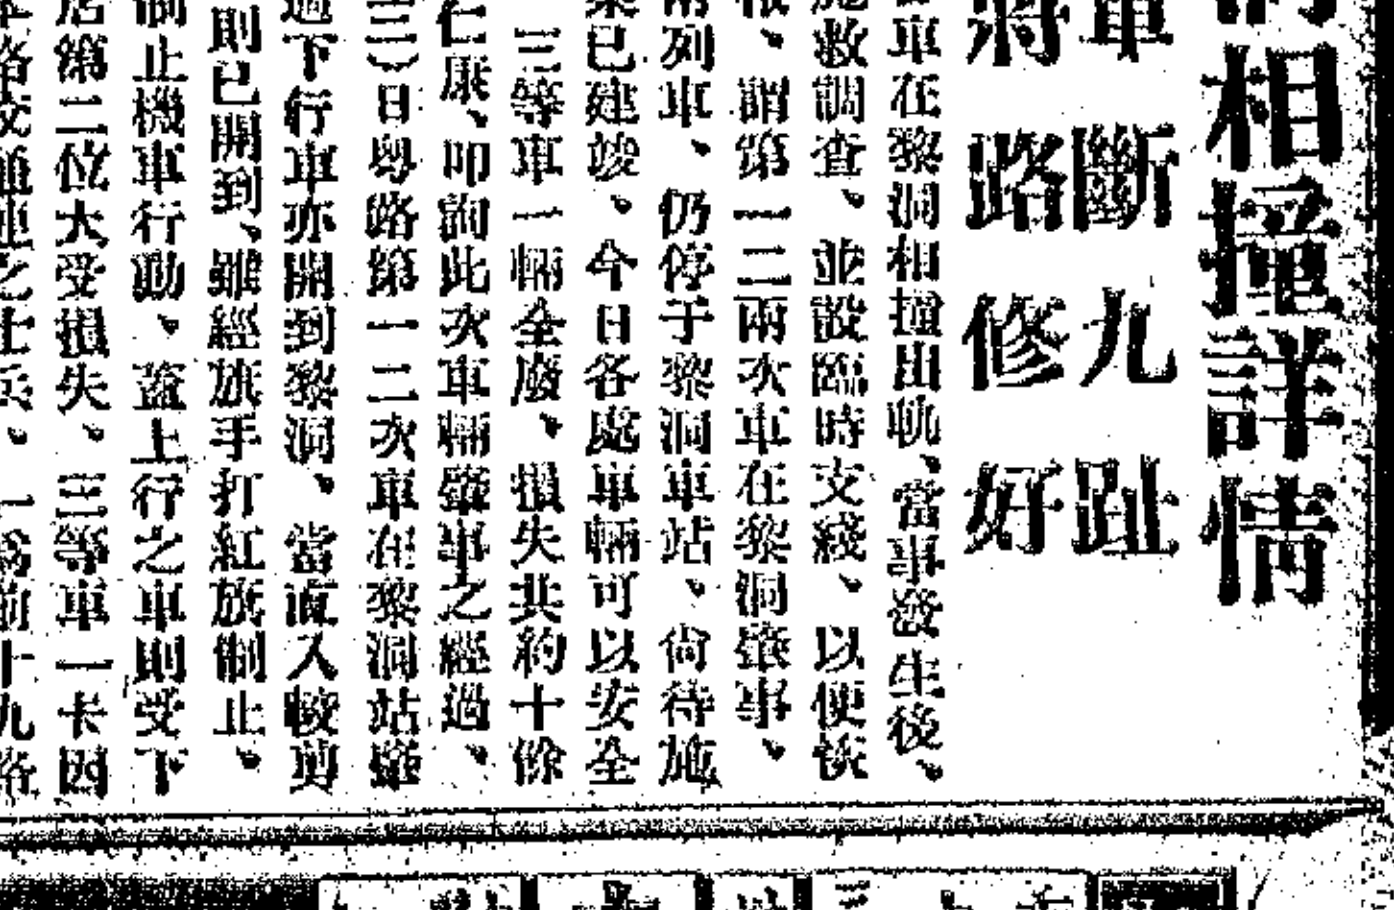 相撞詳情
車斷九趾
將路修好
車在黎洞相撞出軌、當事發生後、
施救調查、並設臨時支綫、以便恢
報、謂第一二兩次車在黎洞肇事、
兩列車、仍停于黎洞車站、尙待施
業已建竣、今日各處車輛可以安全
三等車一輛全廢、損失共約十餘
仁康、叩詢此次車輛肇事之經過、
三）日粤路第一二次車在黎洞站肇
過下行車亦開到黎洞、當直入鉸剪
則已開到、雖經旗手打紅旗制止、
制止機車行動、蓋上行之車則受下
店第二位大受損失、三等車一卡因
路交通連之士兵、一爲前十九路